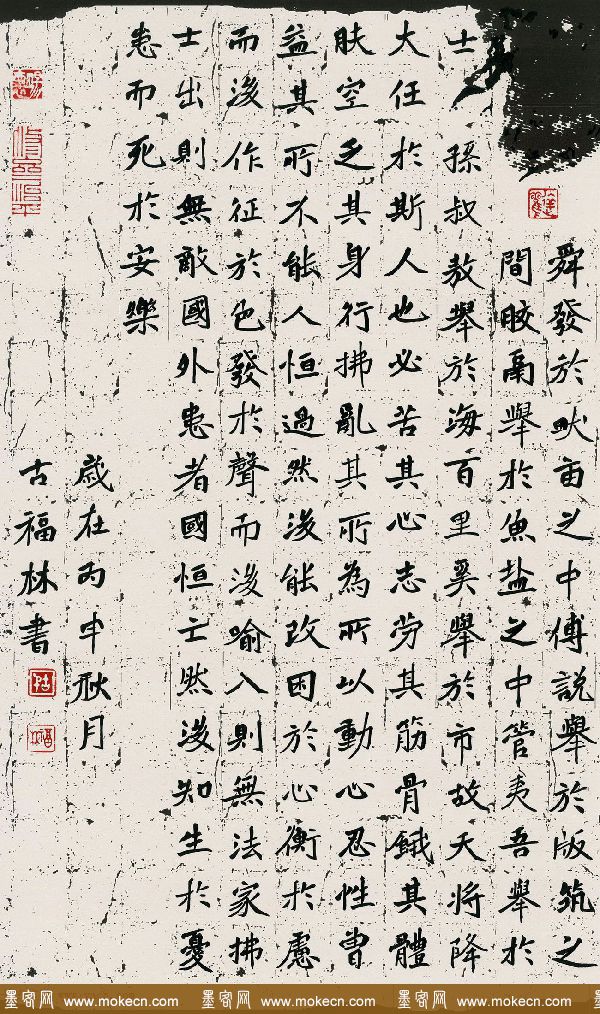 舜發於畎亩之中傅説舉於版筑之
間胶鬲舉於魚盐之中管夷吾舉於
士孫叔敖舉於海百里奚舉於市故天將降
大任於斯人也必苦其心志劳其筋骨餓其體
肤空乏其身行拂亂其所為所以動心忍性曾
益其所不能人恒過然後能改困於心衡於慮
而後作征於色發於聲而後喻入則無法家拂
士出則無敵國外患者國恒亡然後知生於憂
患而死於安樂
歲在丙申秋月
古福林書
墨客网 www.mokecn.com 墨客网 www.mokecn.com 墨客网 www.mokecn.com